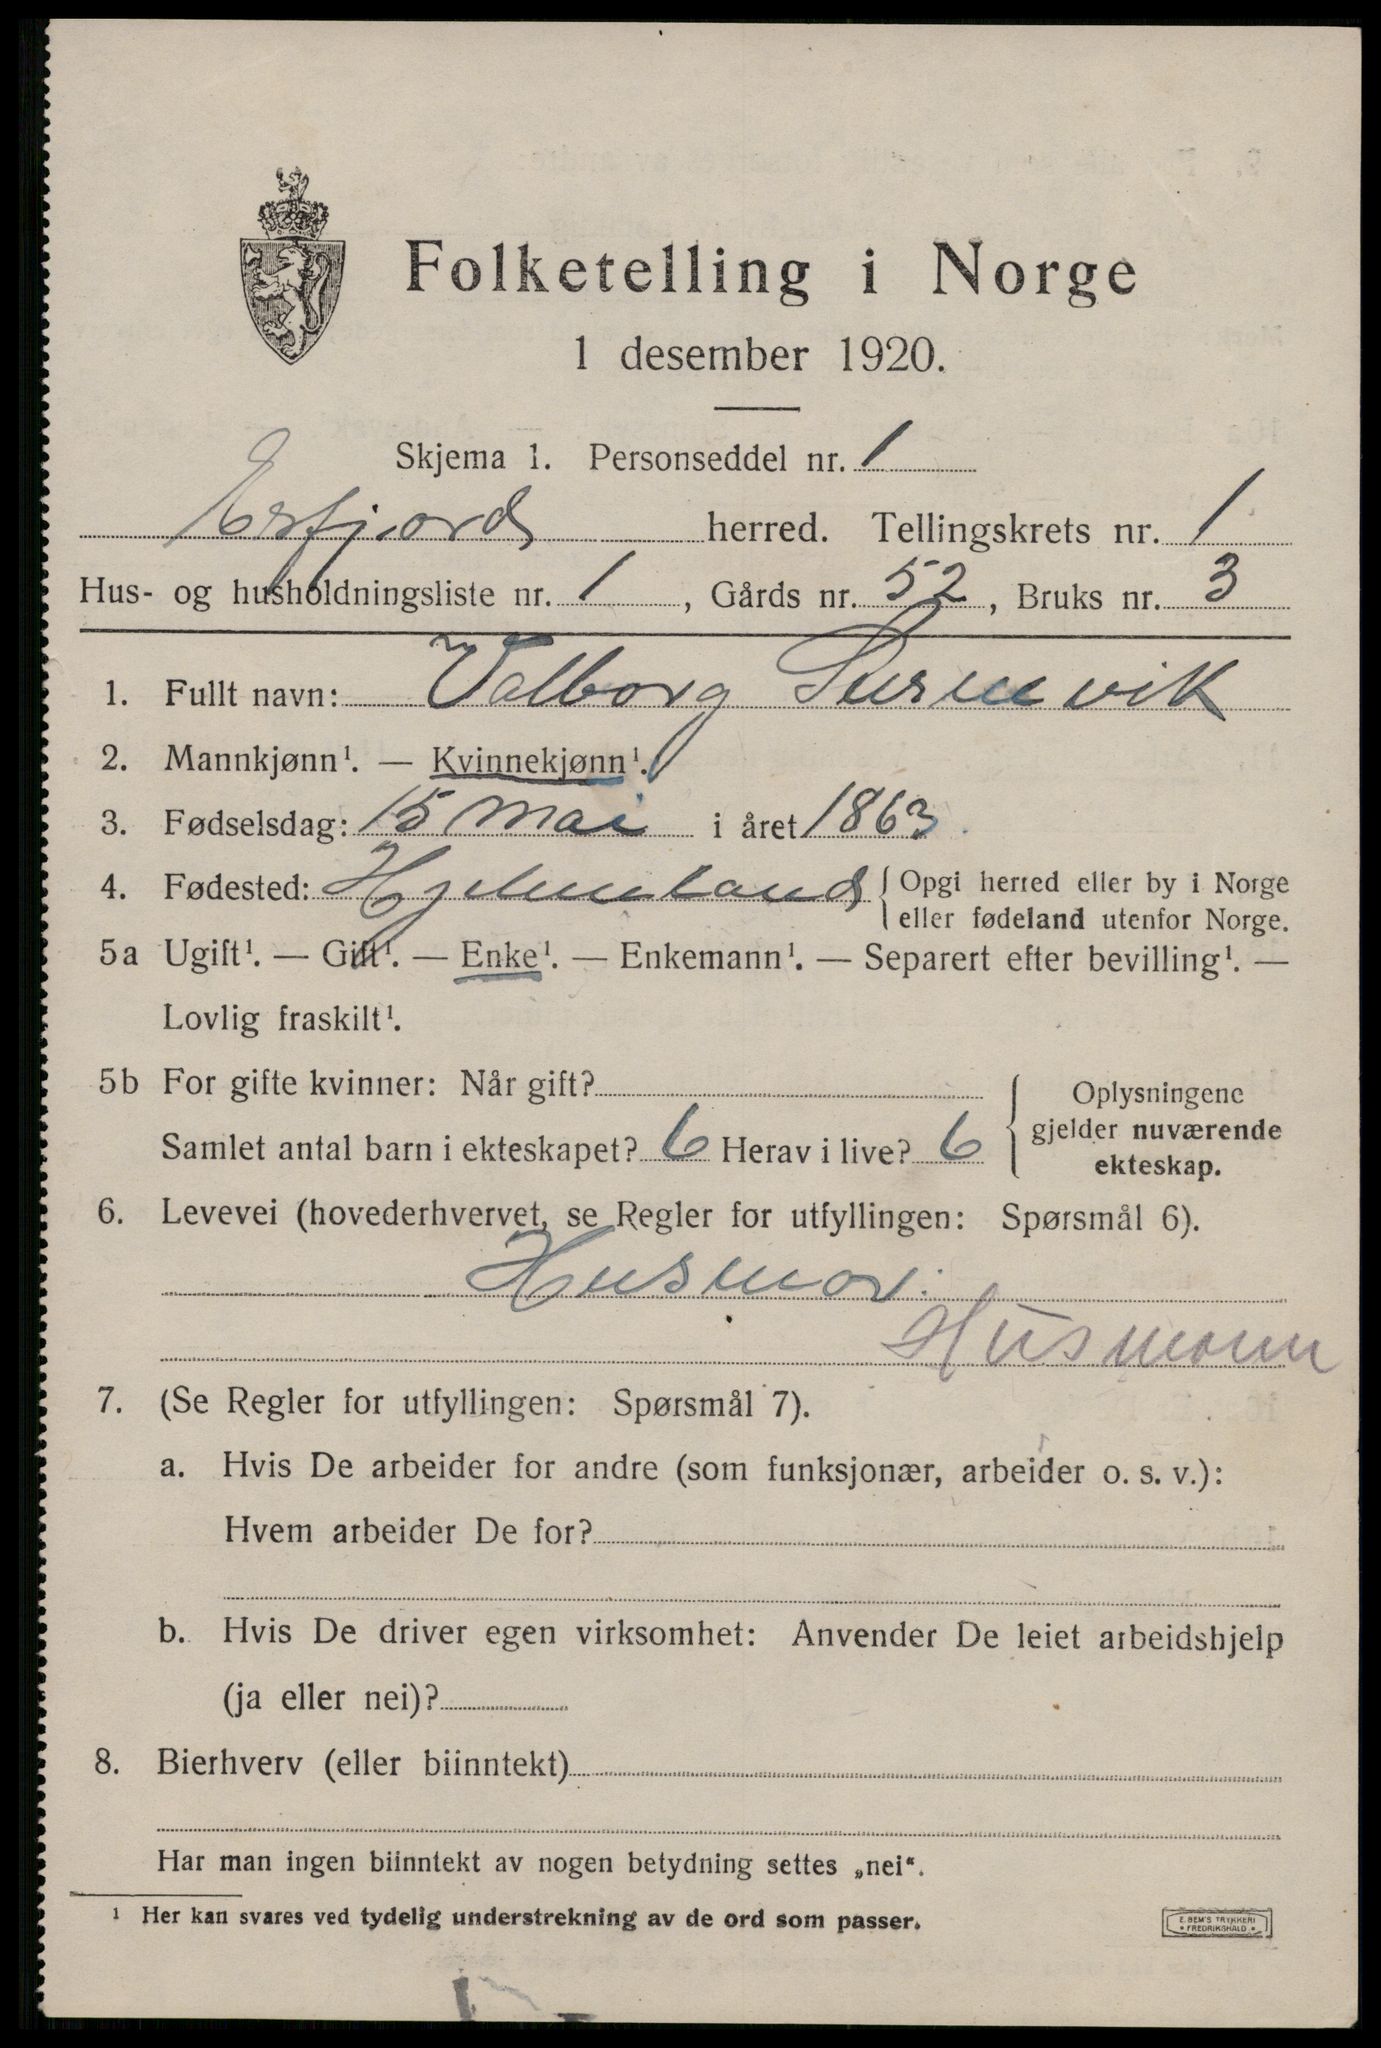 Folketelling i Norge
1 desember 1920.
Skjema 1. Personseddel nr. 1
Erfjord herred. Tellingskrets nr. 1
Hus- og husholdningsliste nr. 1, Gårds nr. 52, Bruks nr. 3
1. Fullt navn: Valborg
2. Mannkjønn¹. — Kvinnekjønn¹.
3. Fødselsdag: 15 mai i året 1863.
4. Fødested: Hjelmeland { Opgi herred eller by i Norge
eller fødeland utenfor Norge.
5a Ugift¹. — Gift¹. — Enke¹. — Enkemann¹. — Separert efter bevilling¹. —
Lovlig fraskilt¹.
5b For gifte kvinner: Når gift?
Samlet antal barn i ekteskapet? 6 Herav i live? 6
Oplysningene
gjelder nuværende
ekteskap.
6. Levevei (hovederhvervet, se Regler for utfyllingen: Spørsmål 6).
Husmor.
Husmann
7. (Se Regler for utfyllingen: Spørsmål 7).
a. Hvis De arbeider for andre (som funksjonær, arbeider o. s. v.):
Hvem arbeider De for?
b. Hvis De driver egen virksomhet: Anvender De leiet arbeidshjelp
(ja eller nei)?
8. Bierhverv (eller biinntekt)
Har man ingen biinntekt av nogen betydning settes „nei“.
¹ Her kan svares ved tydelig understrekning av de ord som passer.
E. SEM'S TRYKKERI
• FREDRIKSHALD •